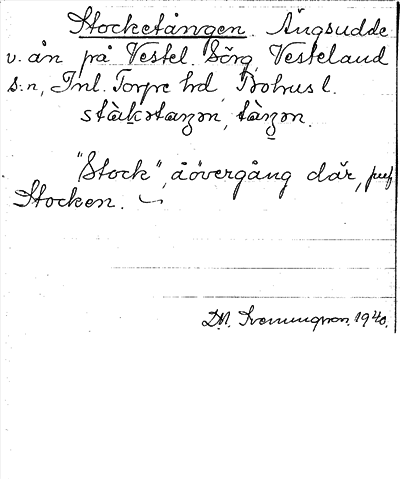 Stocketången. Ängsudde
v. ån på Vestel. Sörg, Vesteland
s:n, Inl. Torpe hd, Bohusl.
stàk̠ətaŋən, tàŋən.
"Stock", åövergång där, jmf
Stocken.
D.N. 1940.